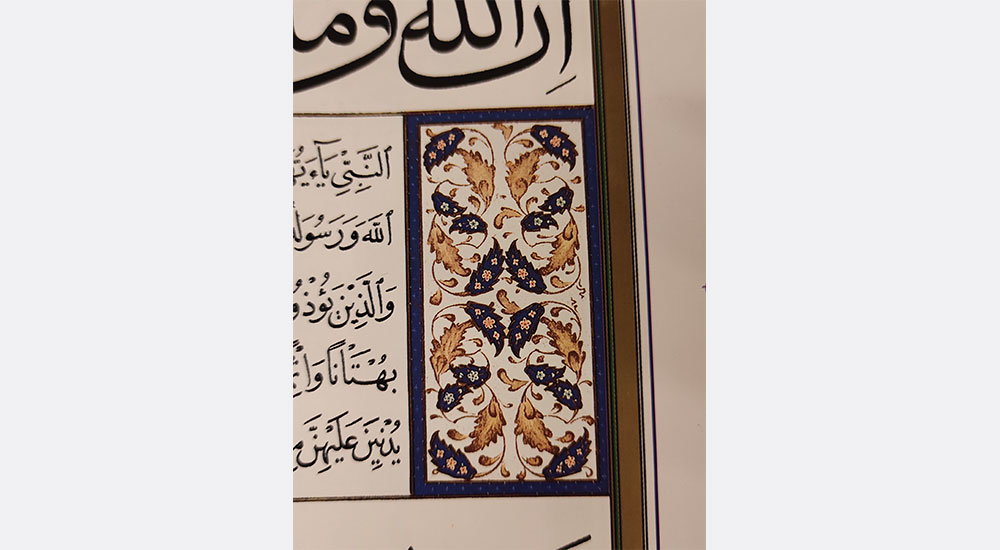 إن الله وم
ٱلنَّبِيِّ يَٰٓأَيُّ
ٱللَّهَ وَرَسُولَهُ
وَٱلَّذِينَ يُؤْذُو
بُهْتَٰنًا وَإِثْم
يُدْنِينَ عَلَيْهِنَّ مِ